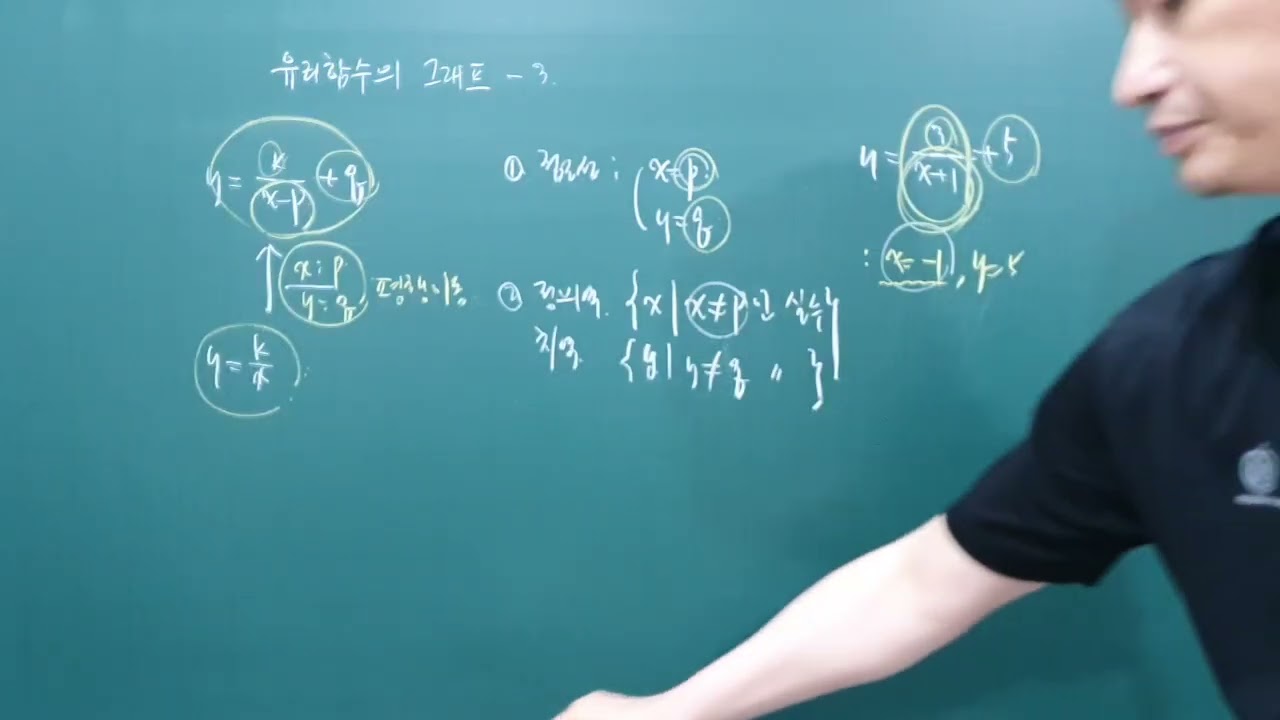 유리함수의 그래프 - 3.
y = k/(x-p) + q
↑ x : p
y : q 평행이동
y = k/x
① 점근선 : x = p
y = q
② 정의역 {x | x ≠ p인 실수}
치역 {y | y ≠ q 〃 }
y = 3/(x+1) + 5
: x = -1, y = 5